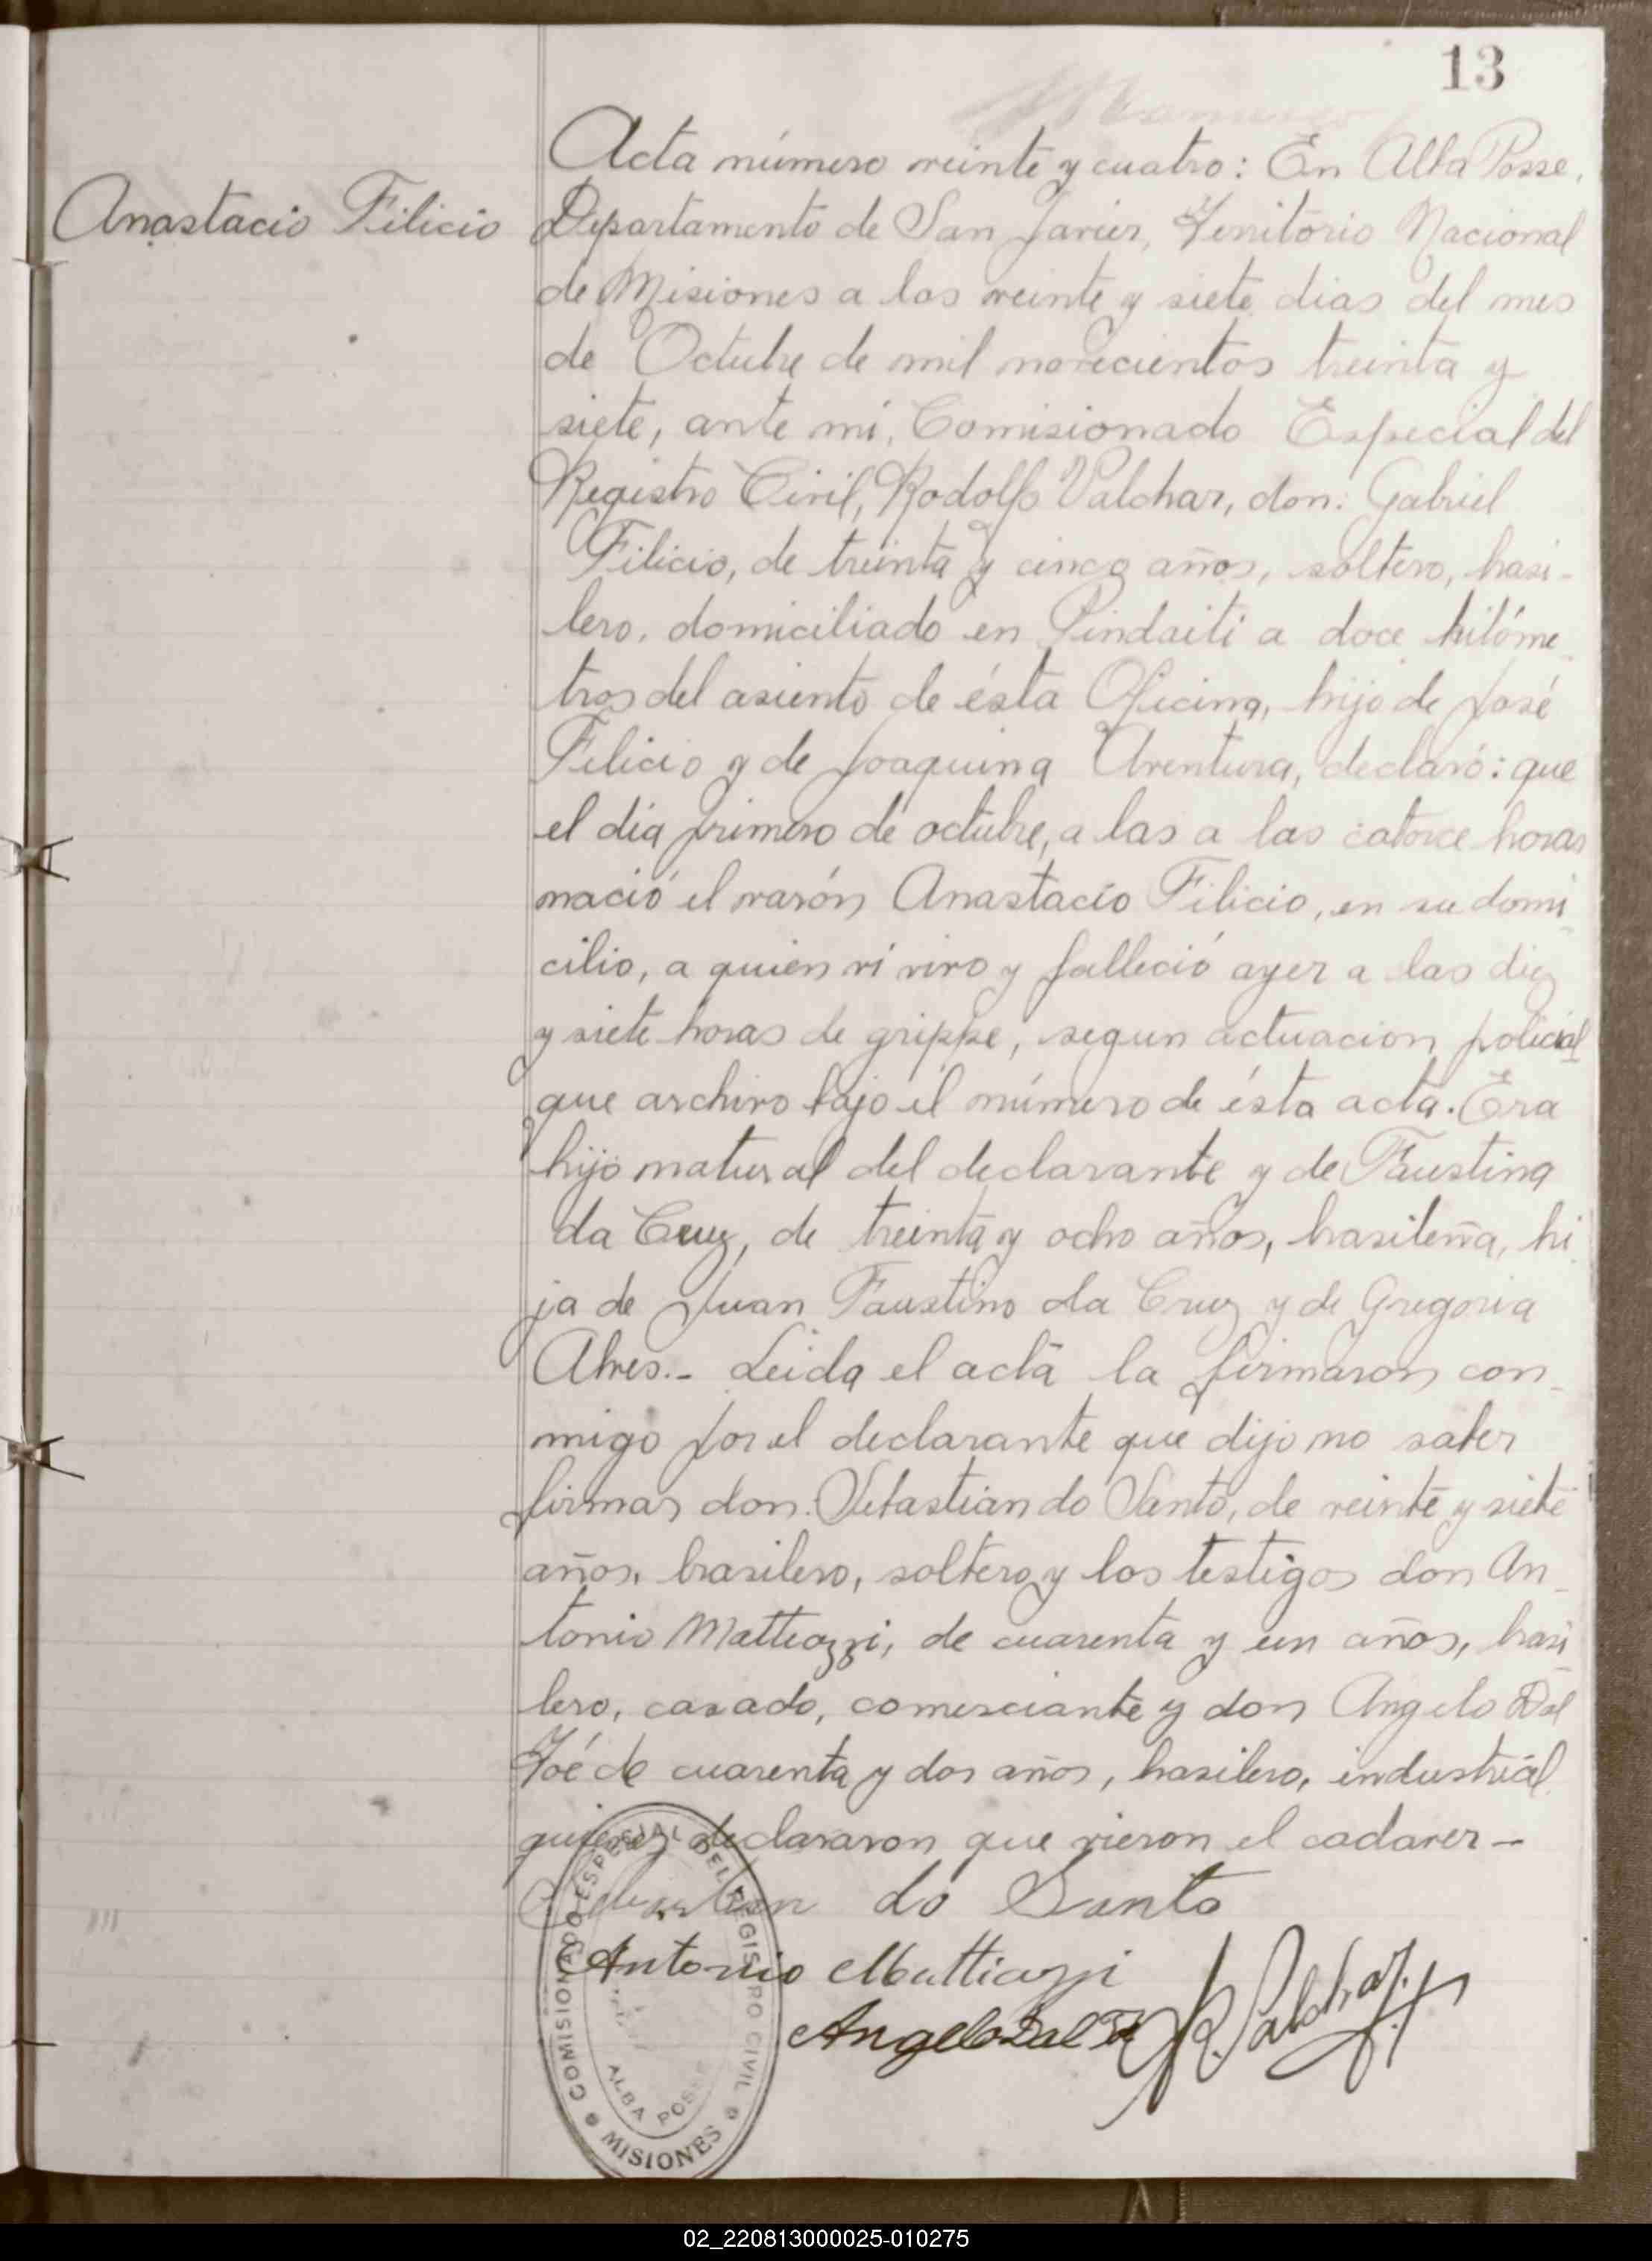 13
Acta número veinte y cuatro: En Alba Posse,
Anastacio Filicio
Departamento de San Javier, Territorio Nacional
de Misiones a los veinte y siete dias del mes
de Octubre de mil novecientos treinta y
siete, ante mi, Comisionado Especial del
Registro Civil, Rodolfo Valchar, don: Gabriel
Filicio, de treinta y cinco años, soltero, brasi-
lero, domiciliado en Pindaiti a doce kilóme-
tros del asiento de ésta Oficina, hijo de José
Felicio y de Joaquina Aventura, declaró: que
el día primero de octubre, a las a las catorce horas
nació el varón Anastacio Filicio, en su domi-
cilio, a quien ví vivo y falleció ayer a las diez
y siete horas de grippe, segun actuacion policial
que archivo bajo el número de ésta acta. Era
hijo natural del declarante y de Faustina
da Cruz, de treinta y ocho años, brasileña, hi-
ja de Juan Faustino da Cruz y de Gregoria
Alves.- Leida el acta la firmaron con-
migo por el declarante que dijo no saber
firmar don: Sebastian do Santo, de veinte y siete
años, brasilero, soltero, y los testigos don An-
tonio Matteazzi, de cuarenta y un años, brasi-
lero, casado, comerciante y don Angelo Dal
Foé de cuarenta y dos años, brasilero, industrial
quienes declararon que vieron el cadaver-
Sebastian do Santo
Antonio Mattiazzi
Angelo Dal
R. Valchar
COMISIONADO ESPECIAL DEL REGISTRO CIVIL
ALBA POSSE
MISIONES
02_220813000025-010275